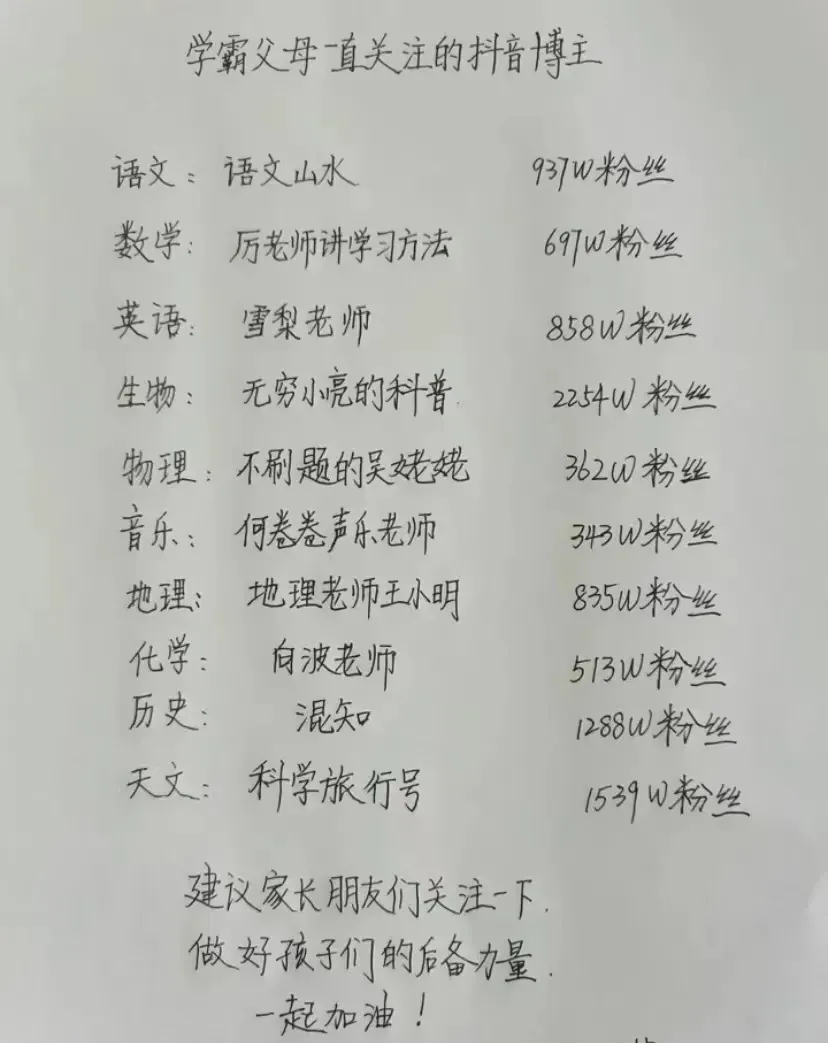 学霸父母一直关注的抖音博主
语文：语文山水 937W粉丝
数学：厉老师讲学习方法 697W粉丝
英语：雪梨老师 858W粉丝
生物：无穷小亮的科普. 2254W粉丝
物理：不刷题的吴姥姥 362W粉丝
音乐：何卷卷声乐老师 343W粉丝
地理：地理老师王小明 835W粉丝
化学：白波老师 513W粉丝
历史：混知 1288W粉丝
天文：科学旅行号 1539W粉丝
建议家长朋友们关注一下.
做好孩子们的后备力量.
一起加油！